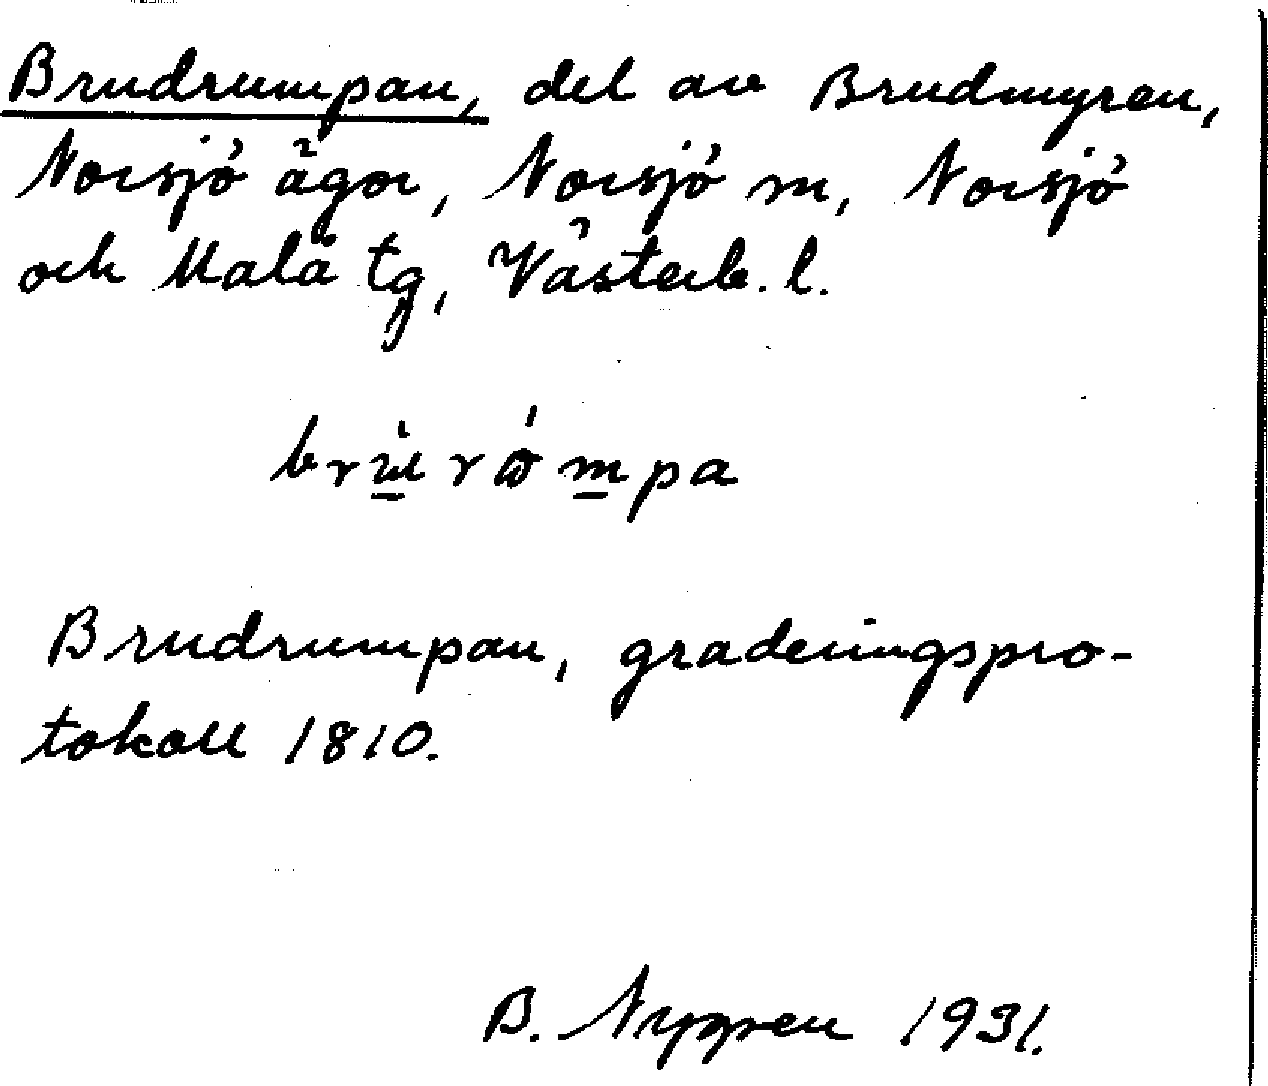 Brudrumpan, del av Brudmyren,
Norsjö ägor, Norsjö m, Norsjö
och Malå tg, Västerb. l.
Brudrumpan, graderingspro-
tokoll 1810.
B. Nygren 1931.